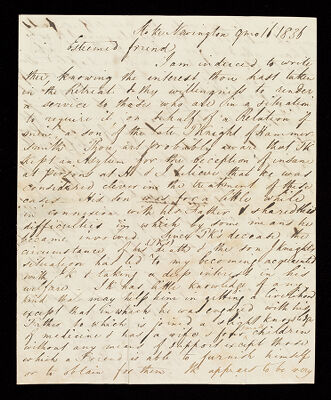 Stoke Newington 9 mo 16 1836
Esteemed friend,
I am induced to write
thee, knowing the interest thou hast taken
in the Retreat & thy willingness to render
a service to those who are in a situation
to require it, on behalf of a Relation of
mine a son of the late J Knight of Hammer
smith Thou art probably aware that J K
kept an Asylum for the reception of insane
persons at H & I believe that he was
considered clever in the treatment of these
cases His son was for a little while
in connexion with his Father & shared his
difficulties in which by some means he
became involved Since J K's decease the
circumstances of his death & the son J Knights
situation has led to my becoming acquainted
with J K & taking a deep interest in his
welfare J K has little knowledge of any
kind that may help him in getting a livelihood
except that in which he was engaged with his
Father to which is joined a slight knowledge
of medicine & has a widow & five children
without any means of support except those
which a Friend is able to furnish himself
or to obtain for them He appears to be very